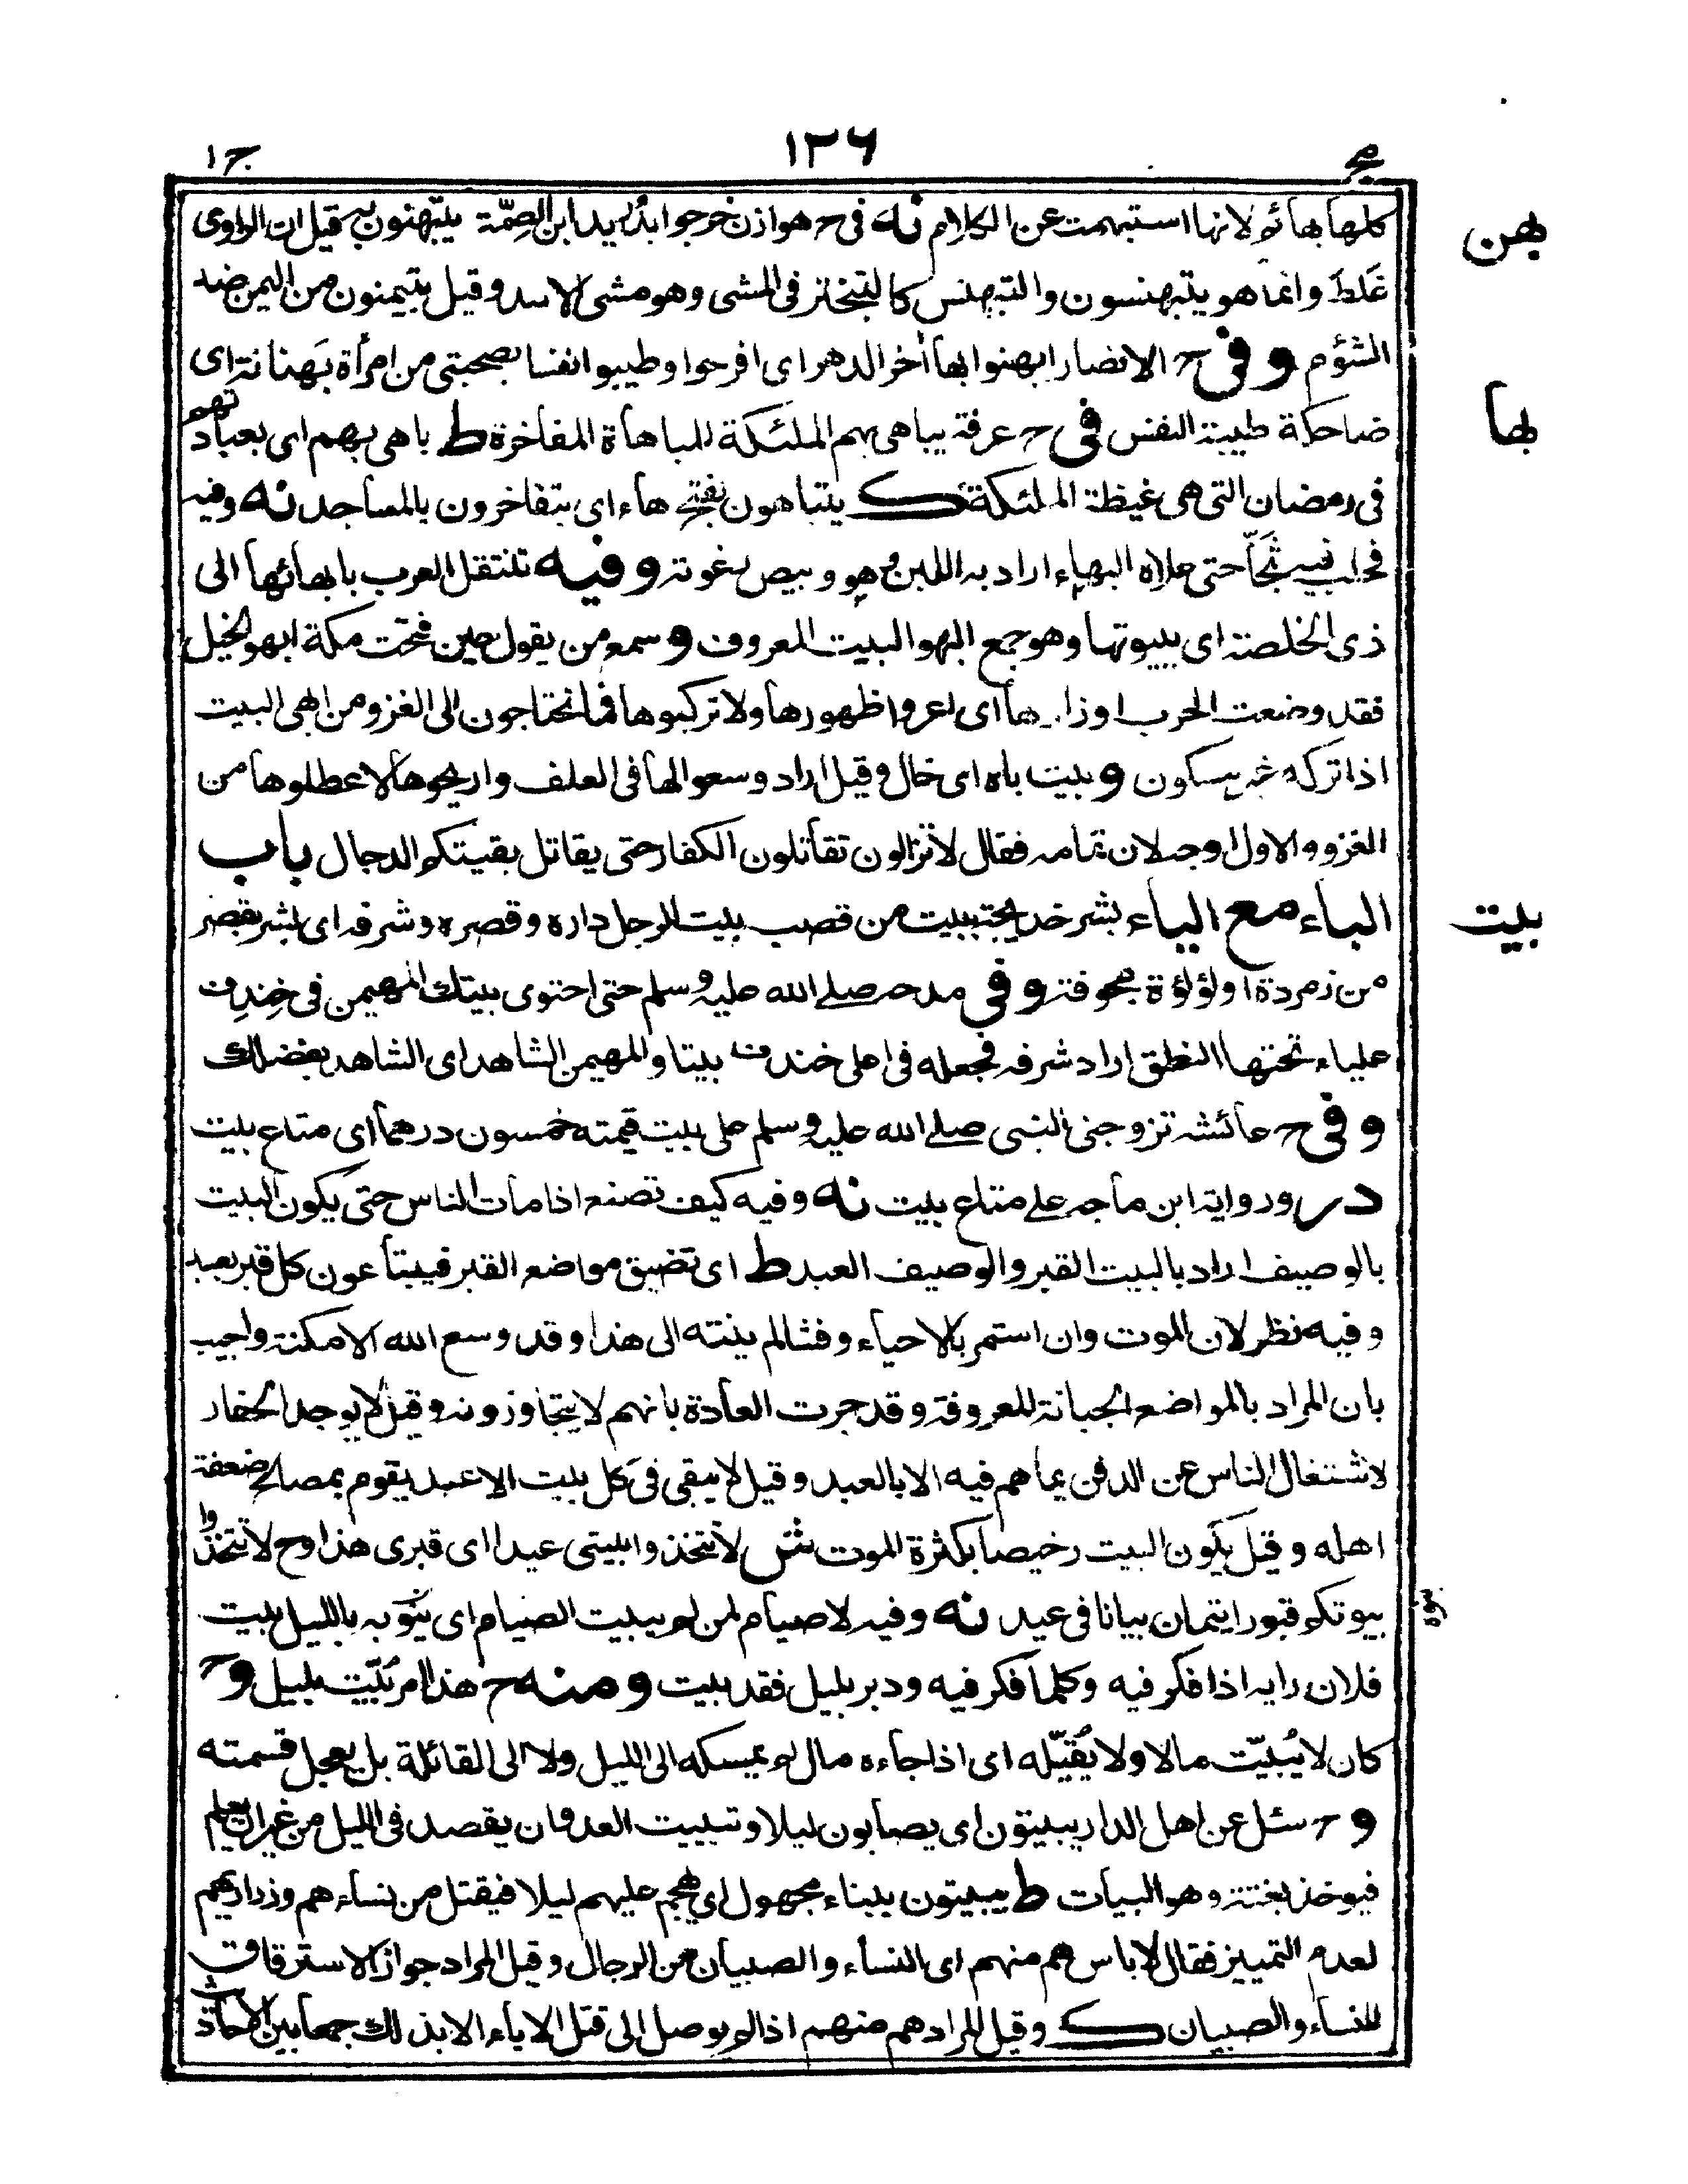 ج ١
١٢٦
كلها بهائم لانها استبهمت عن الكلام نه فى ح هوازن خرجوا بدُريد ابن الصِمّة يتبهنون به قيل ان الراوى
بهن
غَلَطَ وانما هو يتبهنسون والتبهنس كالتبختر فى المشى وهو مشى الاسد وقيل يتيمنون من اليمن ضد
الشؤم وفى ح الانصار ابهنوا بها أخر الدهر اى افرحوا وطيبوا انفسا بصحبتى من امرأة بَهنانة اى
ضاحكة طيبة النفس فى ح عرفة يباهى بهم الملئكة المباهاة المفاخرة ط باهى بهم اى بعبادتهم
بها
فى رمضان التى هى غيظة الملئكة ك يتباهون بفتح هاء اى يتفاخرون بالمساجد نه وفيه
فحلب فيه ثَجّاً حتى علاه البهاء اراد به اللبن وهو وبيص رغوته وفيه تنتقل العرب بابهائها الى
ذى الخلصة اى ببيوتها وهو جمع البهو البيت المعروف و سمع من يقول حين فتحت مكة ابهوا الخيل
فقد وضعت الحرب اوزارها اى اعروا ظهورها ولا تركبوها فما تحتاجون الى الغزو من ابهى البيت
اذا تركه غير مسكون و بيت باه اى خال وقيل اراد وسعوا لها فى العلف واريحوها لا عطلوها من
الغزو والاول اوجه لان تمامه فقال لا تزالون تقاتلون الكفار حتى يقاتل بقيتكم الدجال باب
الباء مع الياء بشر خديجة ببيت من قصب بيت الرجل داره وقصره وشرفه اى بشر بقصر
بيت
من زمردة او لؤلؤة مجوفة وفى مدحه صلے الله عليه وسلم حتى احتوى بيتك المهيمن فى خِندِف
علياء تحتها النطق اراد شرفه فجعله فى اعلى خندف بيتا والمهيمن الشاهد اى الشاهد بفضلك
وفى ح عائشة تزوجنى النبى صلے الله عليه وسلم على بيت قيمته خمسون درهما اى متاع بيت
در ورواية ابن ماجه على متاع بيت نه وفيه كيف تصنع اذا مات الناس حتى يكون البيت
بالوصيف اراد بالبيت القبر والوصيف العبد ط اى تضيق مواضع القبر فيبتاعون كل قبر بعبد
وفيه نظر لان الموت وان استمر بالاحياء وفشا لم ينته الى هذا وقد وسع الله الامكنة واجيب
بان المراد بالمواضع الجبانة المعروفة وقد جرت العادة بانهم لا يتجاوزونه وقيل لا يوجد الحفار
لاشتغال الناس عن الدفن بما هم فيه الا بالعبد وقيل لا يبقى فى كل بيت الا عبد يقوم بمصالح ضعفة
اهله وقيل يكون البيت رخيصا بكثرة الموت ش لا تتخذوا بيتى عيدا اى قبرى هذا وح لا تتخذوا
بيوتكم قبورا يتمان بيانا فى عيد نه وفيه لا صيام لمن لم يبيت الصيام اى ينوَ به بالليل بيت
فلان رايه اذا فكر فيه وكلما فكر فيه ودبر بليل فقد بيت ومنه ح هذا امر بُيِّت بليل وح
كان لا يُبيّت مالا ولا يُقَيّله اى اذا جاءه مال لم يمسكه الى الليل ولا الى القائلة بل يعجل قسمته
و ح سئل عن اهل الدار يبيتون اى يصابون ليلا وتبييت العدو ان يقصد فى الليل من غير ان يعلم
فيوخذ بغتة وهو البيات ط يبيتون ببناء مجهول اى يهجم عليهم ليلا فيقتل من نساءهم وذراريهم
لعدم التمييز فقال لا باس هم منهم اى النساء والصبيان من الرجال وقيل المراد جواز الاسترقاق
للنساء والصبيان ك وقيل المراد هم منهم اذا لم يوصل الى قتل الاباء الا بذلك جمعا بين الاحاديث